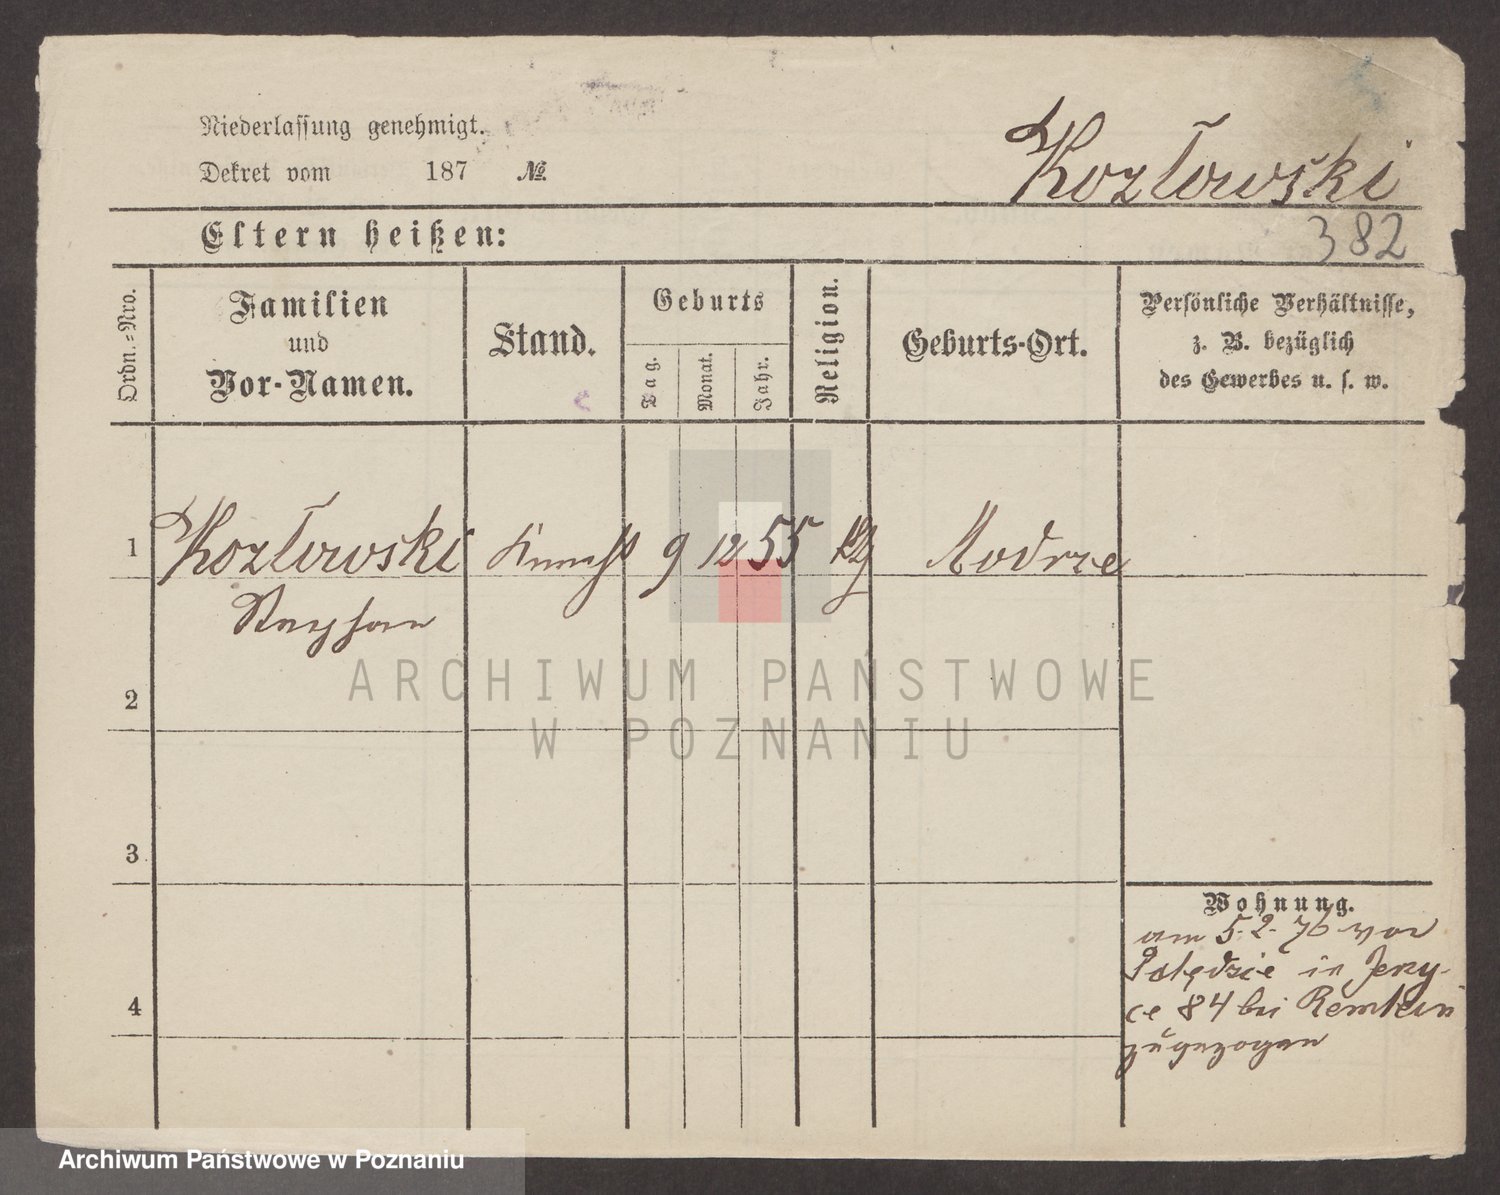 Niederlassung genehmigt.
Dekret vom 187 №
Kozłowski
Eltern heißen:
382
Ordn.-Nro.
Familien
und
Vor-Namen.
Stand.
Geburts
Tag.
Monat.
Jahr.
Religion.
Geburts-Ort.
Persönliche Verhältnisse,
z. B. bezüglich
des Gewerbes u. s. w.
1 Kozłowski Knecht 9 12 55 Modrze
Stephan
2
3
4
Wohnung.
am 5. 2. 76 von
Palędzie in Jerzy-
ce 84 bei
zugezogen
ARCHIWUM PAŃSTWOWE
W POZNANIU
Archiwum Państwowe w Poznaniu